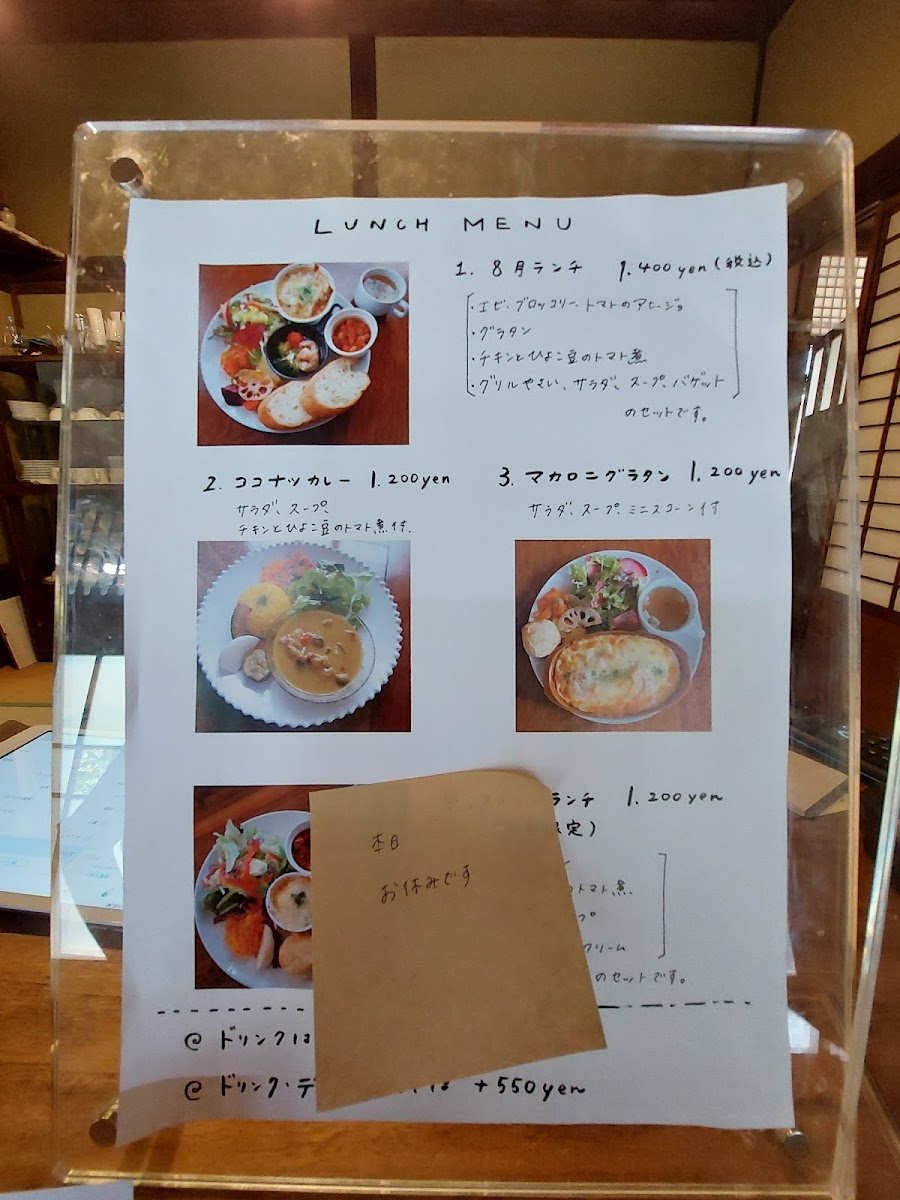 LUNCH MENU
1. 8月ランチ 1.400yen(税込)
・エビ、ブロッコリー、トマトのアヒージョ
・グラタン
・チキンとひよこ豆のトマト煮
・グリルやさい、サラダ、スープ、バゲット
のセットです。
2. ココナツカレー 1.200yen
サラダ、スープ、
チキンとひよこ豆のトマト煮付.
3. マカロニグラタン 1.200yen
サラダ、スープ、ミニスコーン付
ランチ 1.200yen
定)
トマト煮
プ
クリーム
のセットです。
本日
お休みです
@ ドリンクは
@ ドリンク・デ は +550yen